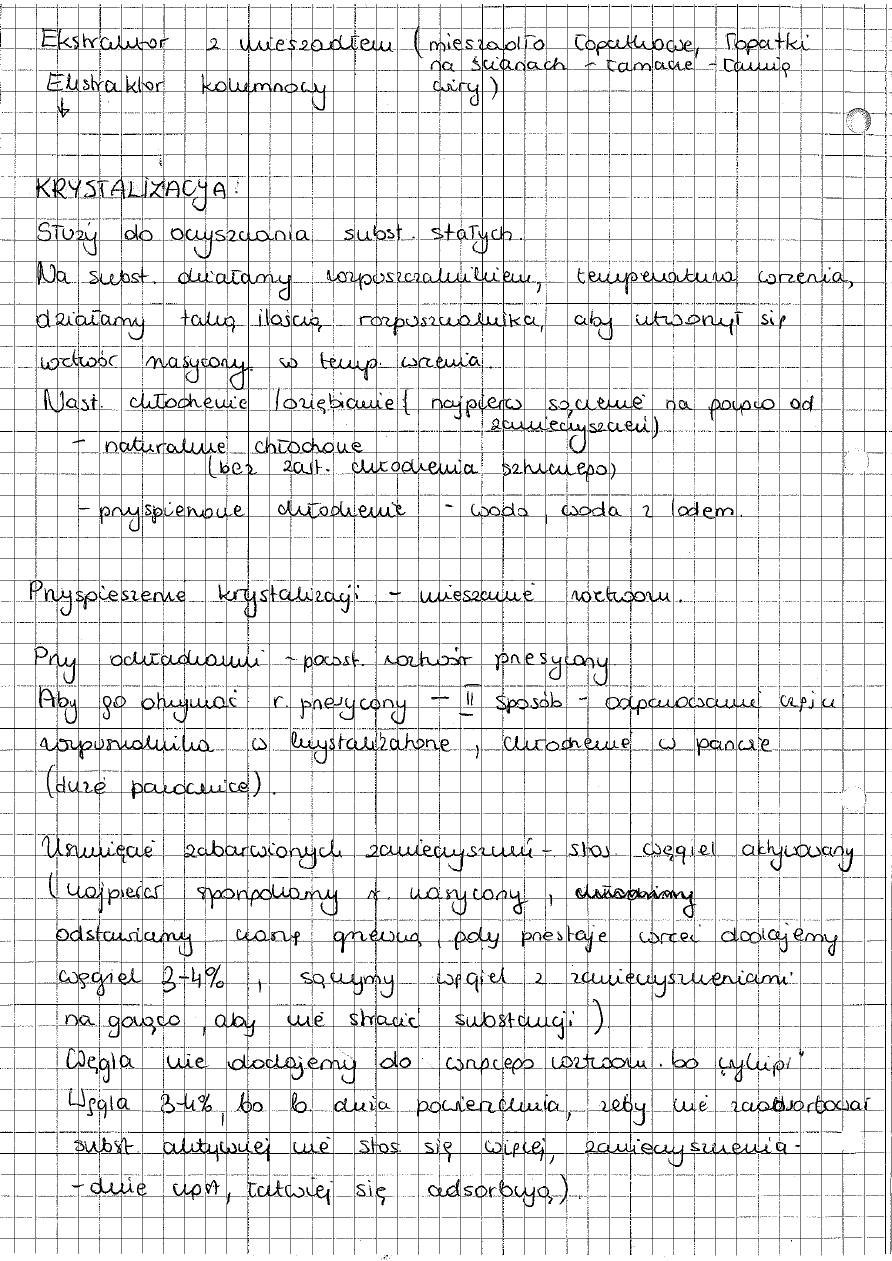 Ekstraktor z mieszadłem (mieszadło łopatkowe, łopatki
na ścianach - łamacie - łamią
Ekstraktor kolumnowy wiry)
↓
KRYSTALIZACJA:
Służy do oczyszczania subst. stałych.
Na subst. działamy rozpuszczalnikiem, temperatura wrzenia,
działamy taką ilością rozpuszczalnika, aby utworzył się
roztwór nasycony w temp. wrzenia.
Nast. chłodzenie /oziębianie/ (najpierw sączenie na gorąco od
zanieczyszczeń)
- naturalne chłodzenie
(bez zast. chłodzenia sztucznego)
- przyspieszone chłodzenie - woda, woda z lodem.
Przyspieszenie krystalizacji - mieszanie roztworu.
Przy ochładzaniu - powst. roztwór przesycony
Aby go otrzymać r. przesycony - II sposób - odparowanie części
rozpuszczalnika w krystalizatorze, chłodzenie w parowce
(duże parownice).
Usunięcie zabarwionych zanieczyszczeń - stos. węgiel aktywowany
(najpierw sporządzamy r. nasycony,
odstawiamy grzewczą, gdy przestaje wrzeć dodajemy
węgiel 3-4%, sączymy węgiel z zanieczyszczeniami
na gorąco, aby nie stracić substancji)
Węgla nie dodajemy do wrzącego roztworu bo "wykipi"
Węgla 3-4%, bo b. duża powierzchnia, żeby nie zaadsorbować
subst. aktywnej nie stos się więcej, zanieczyszczenia -
- duże łatwiej się adsorbują).